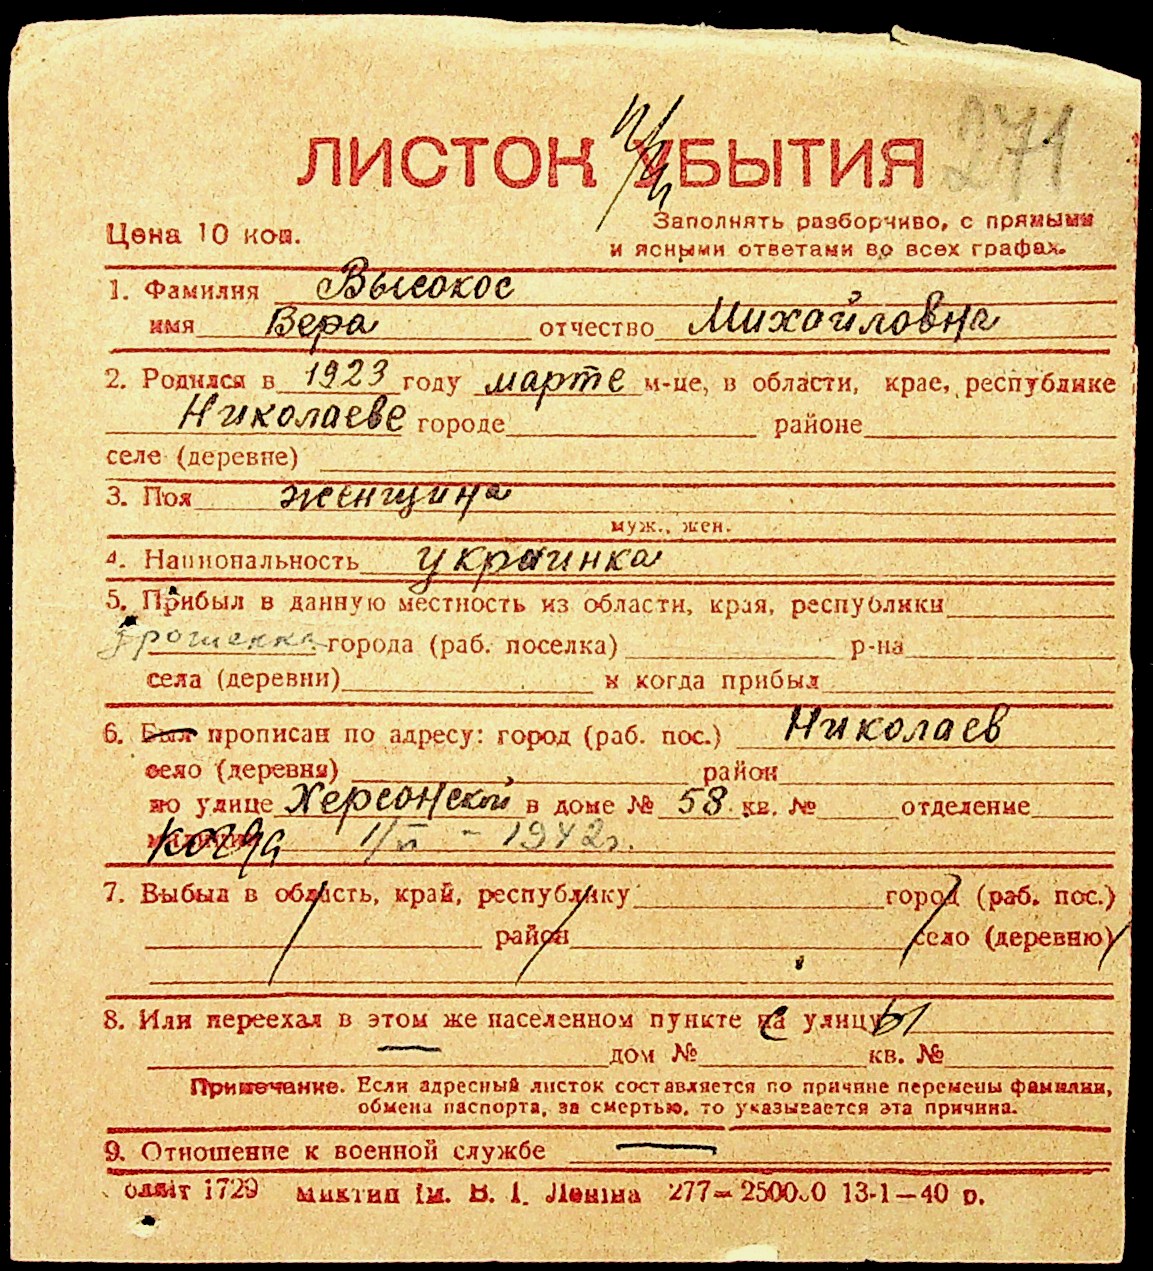 271
ЛИСТОК УБЫТИЯ
Цена 10 коп.
Заполнять разборчиво, с прямыми
и ясными ответами во всех графах.
1. Фамилия Высокос
имя Вера отчество Михайловна
2. Родился в 1923 году марте м-це, в области, крае, республике
Николаеве городе районе
селе (деревне)
3. Пол женщина
муж., жен.
4. Национальность украинка
5. Прибыл в данную местность из области, края, республики
города (раб. поселка) р-на
села (деревни) и когда прибыл
6. Был прописан по адресу: город (раб. пос.) Николаев
село (деревня) район
по улице Херсонской в доме № 58 кв. № отделение
милиции когда 1/VI - 1942г.
7. Выбыл в область, край, республику город (раб. пос.)
район село (деревню)
8. Или переехал в этом же населенном пункте на улицу
дом № кв. №
Примечание. Если адресный листок составляется по причине перемены фамилии,
обмена паспорта, за смертью, то указывается эта причина.
9. Отношение к военной службе —
1729 ім. В. І. Леніна 277— 13-1—40 р.